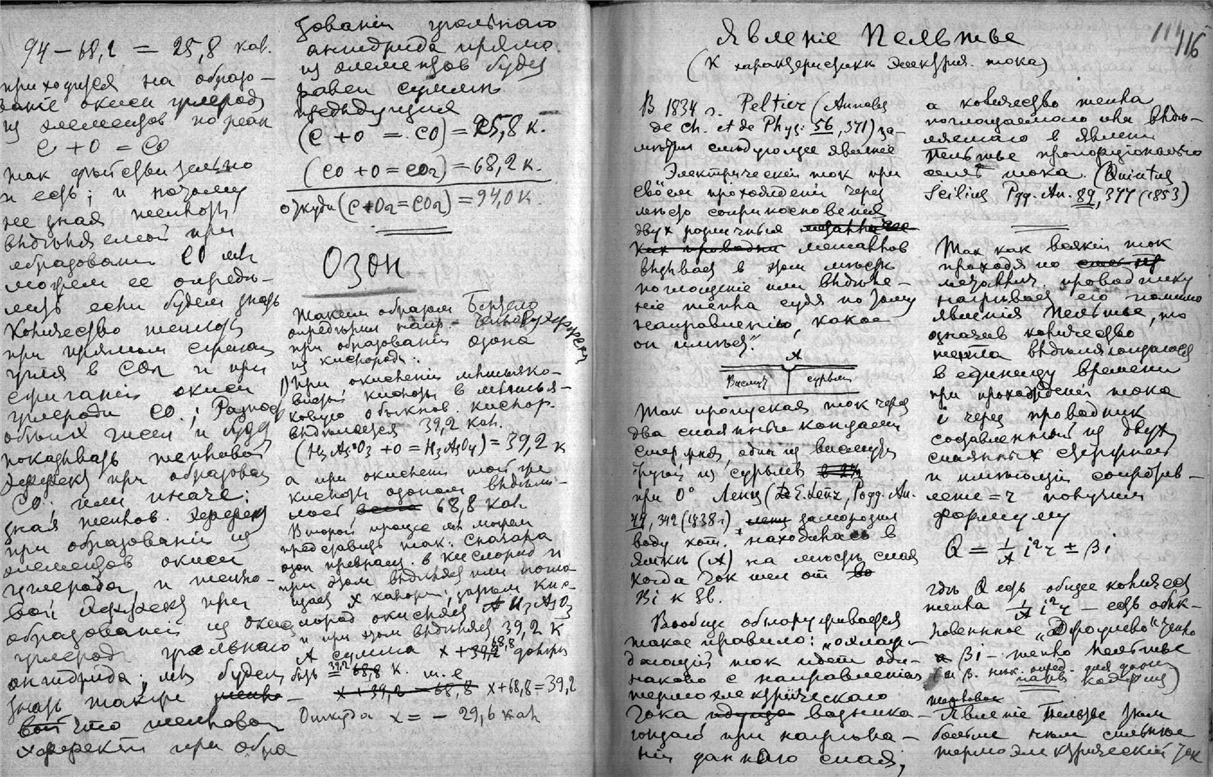 94 – 68,2 = 25,8 кал.
приходится на образо-
ваніе окиси углерода
из элементов по реак
C + O = CO
так действительно
и есть; и потому
не зная теплоты
выделяемой при
образовании CO мы
можем ее опреде-
лить если будем знать
количество теплоты
при прямом сгорании
угля в CO2 и при
сжигании окиси
углерода CO.; Разность
обоих чисел и будет
показывать тепловой
эффект при образован
CO; или иначе:
зная теплов. эффект
при образованіи из
элементов окиси
углерода, и тепло-
вой эффект при
образованіи из окиси
углерода угольнаго
ангидрида; мы будем
знать также тепло-
вой что тепловой
эффект при обра
зованіи угольнаго
ангидрида прямо
из элементов будет
равен сумме
предыдущих
(C + O = CO) = 25,8 к.
(CO + O = CO2) = 68,2 к.
откуда (C + O2 = CO2) = 94,0 к.
Озон
Таким образом Бертело
определил напр. тепловой эффект
при образованіи озона
из кислорода.
1) При окисленіи мышьяко-
вистой кислоты в мышья-
ковую обыкнов. кислор.
выделяется 39,2 кал.
(H3AsO3 + O = H3AsO4) = 39,2 к
а при окислении той же
кислоты озоном выдели-
лось 68,8 кал.
Второй процес мы можем
представить так: Сначала
озон превращ. в кислород и
при этом выделяет или погло-
щает x калорий, затем кис-
лород окисляет H3AsO3
и при этом выделяется 39,2 к
А сумма x + 68,8 должна
быть = 39,2 к. т.е.
x + 39,2 = 68,8 x + 68,8 = 39,2
Откуда x = – 29,6 кал
114 116
Явленіе Пельтье
(К характеристике электрич. тока)
В 1834 г. Peltier (Annales
de Ch. et de Phys: 56, 371) за-
метил следующее явление
Электрический ток при
своем прохождении через
место соприкосновения
двух различных
металлов
вызывает в этом месте
поглощение или выделе-
ние тепла судя по тому
направлению, какое
он имеет."
A
Висмут сурьма
Так пропуская ток через
два спаянные концами
стержня, один из висмута
другой из сурьмы
при 0° Ленц (E. Lenz, Pogg. An.
44, 342 (1838г) заморозил
воду кот. находилась в
ямке (A) на месте спая
когда ток шел от
Bi к Sb.
Вообще обнаруживается
такое правило: „охлаж-
дающий ток идет оди-
наково с направлением
термоэлектрического
тока возника-
ющаго при нагрева-
нии даннаго спая;
а количество тепла
поглощаемого или выде-
ляемаго в явлении
Пельтье пропорционально
силе тока. (Quintus
Icilius Pogg. An. 89, 377 (1853)
Так как всякий ток
проходя по
металлич. проводнику
нагревает его помимо
явления Пельтье, то
означив количество
тепла выделяющагося
в единицу времени
при прохождении тока
i через проводник
составленный из двух
спаянных стержней
и имеющий сопротив-
ление = r получим
формулу
Q = 1/A i²r ± βi
где Q есть общее количест
тепла 1/A i²r – есть обык-
новенное „Джоулево" тепло
а βi – тепло Пельтье
Явление Пельтье тем
более чем сильнее
термоэлектрический ток